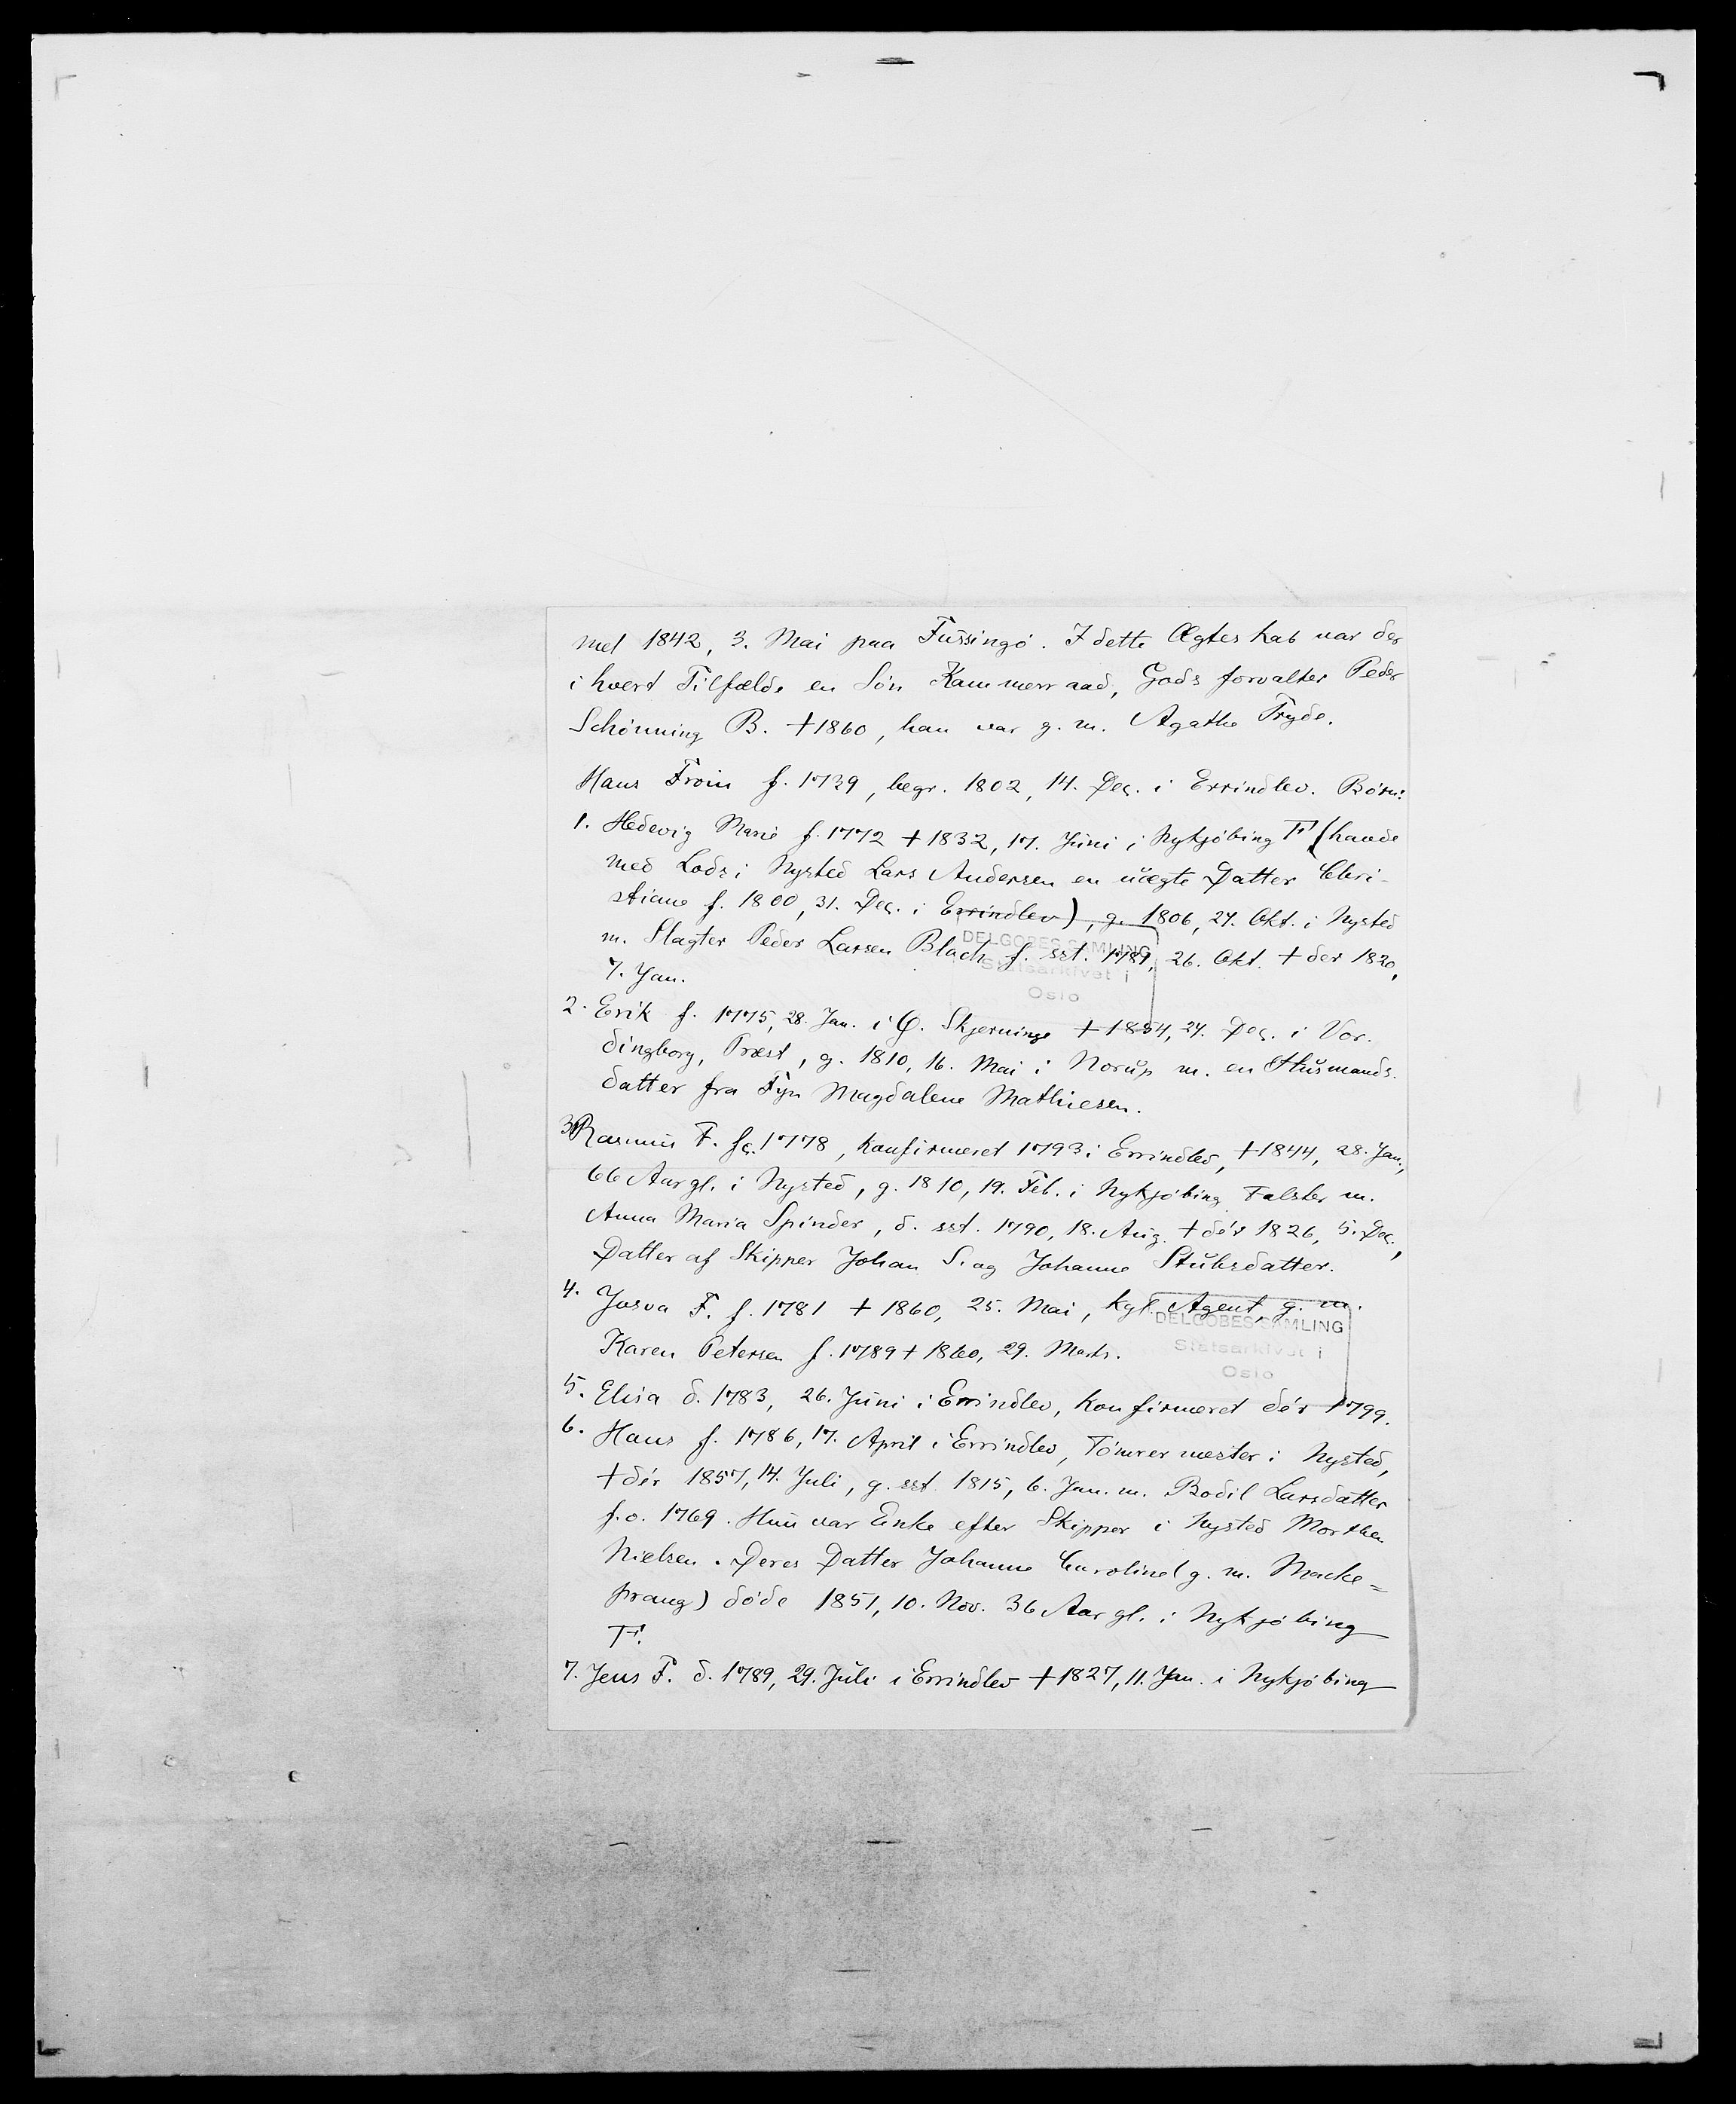 met 1842, 3. Mai paa Fussingö. I dette Ægteskab var der
i hvert Tilfælde en Sön Kammerraad, Godsforvalter Peder
Schönning B. † 1860, han var g. m. Agathe Tryde.
Hans Froin f. 1739, begr. 1802, 14. Dec. i Errindlev. Börn:
1. Hedevig Marie f. 1772 † 1832, 17. Juni i Nykjöbing F (havde
med Lods i Nysted Lars Andersen en uægte Datter Chri-
stiane f. 1800, 31. Dec. i Errindlev), g. 1806, 24. Okt. i Nysted
m. Slagter Peder Larsen Blach f. sst. 1789, 26. Okt. † der 1820,
7. Jan.
DELGOBES SAMLING
Statsarkivet i
Oslo
2. Erik f. 1775, 28. Jan. i Ø. Skjerninge † 1854, 24. Dec. i Vor-
dingborg, Præst, g. 1810, 16. Mai i Norup m. en Husmands-
datter fra Fyn Magdalene Mathiesen.
3. Rasmus F. fc. 1778, Konfirmeret 1793 i Errindlev, † 1844, 28. Jan.,
66 Aar gl. i Nysted, g. 1810, 19. Feb. i Nykjöbing Falster m.
Anna Maria Spinder, d. sst. 1790, 18. Aug. † dér 1826, 5. Dec.,
Datter af Skipper Johan S. og Johanne Stuhrsdatter.
4. Josva F. f. 1781 † 1860, 25. Mai, kgl. Agent, g. m.
Karen Petersen f. 1789 † 1860, 29. Marts.
DELGOBES SAMLING
Statsarkivet i
Oslo
5. Elisa d. 1783, 26. Juni i Errindlev, Konfirmeret dér 1799.
6. Hans f. 1786, 17. April i Errindlev, Tömrermester i Nysted,
† dér 1857, 14. Juli, g. sst. 1815, 6. Jan. m. Bodil Larsdatter
f. o. 1769. Hun var Enke efter Skipper i Nysted Morthen
Nielsen. Deres Datter Johanne Caroline (g. m. Macke=
prang) döde 1851, 10. Nov. 36 Aar gl. i Nykjöbing
F.
7. Jens F. d. 1789, 29. Juli i Errindlev † 1827, 11. Jan. i Nykjöbing